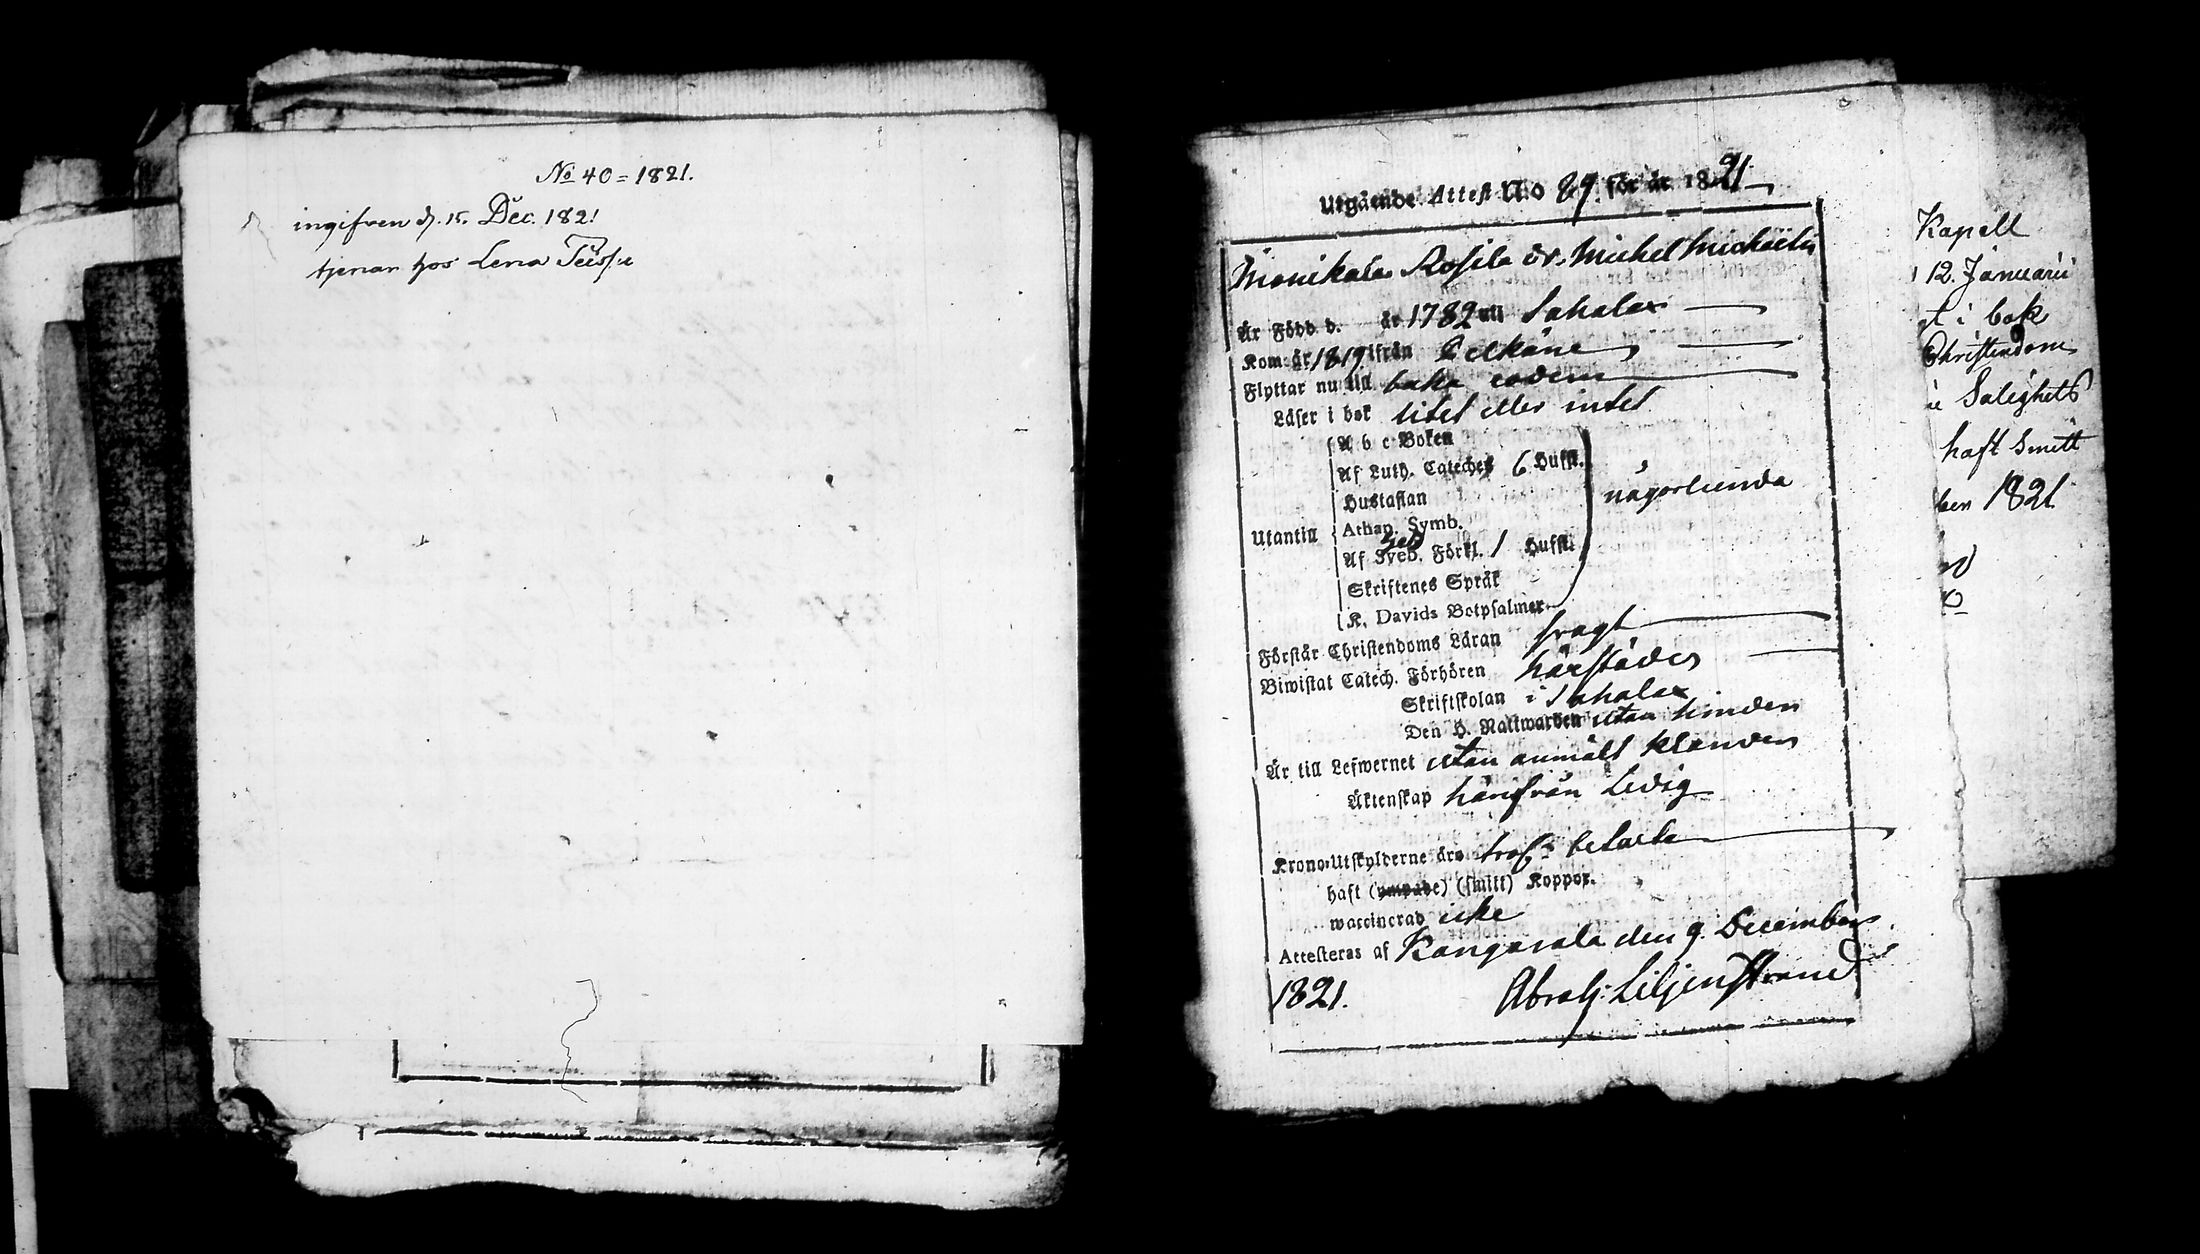 No 40 = 1821.
ingifven d. 15. Dec. 1821
tjenar hos Lena
Utgående Attest No 89. för år 1821
Michel Michelss
Är Född d. år 1782 uti Sahalax
Kom år 1819 ifrån Pelkäne
Flyttar nu till baka eodem
Läser i bok litet eller intet
A b c Boken
Af Luth. Cateches 6 Hufst.
Hustaflan
någorlunda
Utantill Athan. Symb.
Af Sveb. Förkl. 1 Hufst.
Skriftenes Språk
K. Davids Botpsalmer
Förstår Christendoms Läran svagt
Biwistat Catech. Förhören härstädes
Skriftskolan i Sahalax
Den H. Nattwarden utan hinder
Är till Lefwernet utan anmält klander
Äktenskap härifrån Ledig
Krono-Utskylderne äro betalte
haft (ympade) (smitt) Koppor.
waccinerad icke
Attesteras af Kangasala den 9. December
1821. Abrah: Liljenstrand
Kapell
12. Januarii
i bok
Christendoms
Salighets
haft Smitt
ber 1821